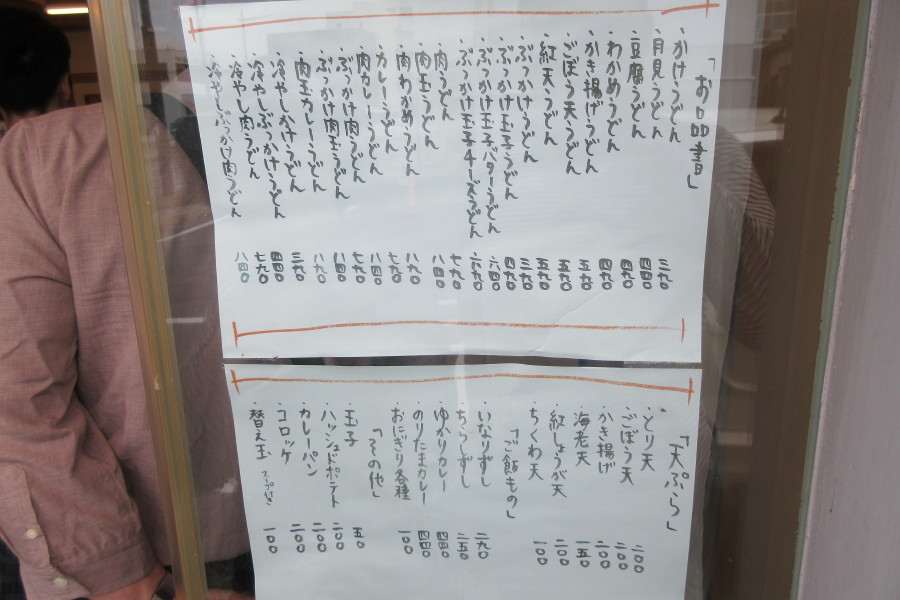 「お品書」
・かけうどん 三九〇
・月見うどん 四四〇
・豆腐うどん 四九〇
・わかめうどん 四九〇
・かき揚げうどん 五九〇
・ごぼう天うどん 五九〇
・紅天うどん 五九〇
・ぶっかけうどん 三九〇
・ぶっかけ玉子うどん 四九〇
・ぶっかけ玉子バターうどん 六四〇
・ぶっかけ玉子チーズうどん 六九〇
・肉うどん 七九〇
・肉玉うどん 八四〇
・肉わかめうどん 八九〇
・カレーうどん 七九〇
・肉カレーうどん 八四〇
・ぶっかけ肉うどん 七九〇
・ぶっかけ肉玉うどん 八四〇
・肉玉カレーうどん 八九〇
・冷やしかけうどん 三九〇
・冷やしぶっかけうどん 四四〇
・冷やし肉うどん 七九〇
・冷やしぶっかけ肉うどん 八四〇
「天ぷら」
・とり天 二〇〇
・ごぼう天 二〇〇
・かき揚げ 二〇〇
・海老天 一五〇
・紅しょうが天 二〇〇
・ちくわ天 一〇〇
「ご飯もの」
・いなりずし 二九〇
・ちらしずし 二五〇
・ゆかりカレー 四四〇
・のりたまカレー 四四〇
・おにぎり各種 一〇〇
「その他」
・玉子 五〇
・ハッシュドポテト 二〇〇
・カレーパン 二〇〇
・コロッケ 二〇〇
・替え玉 スープ付き 一〇〇